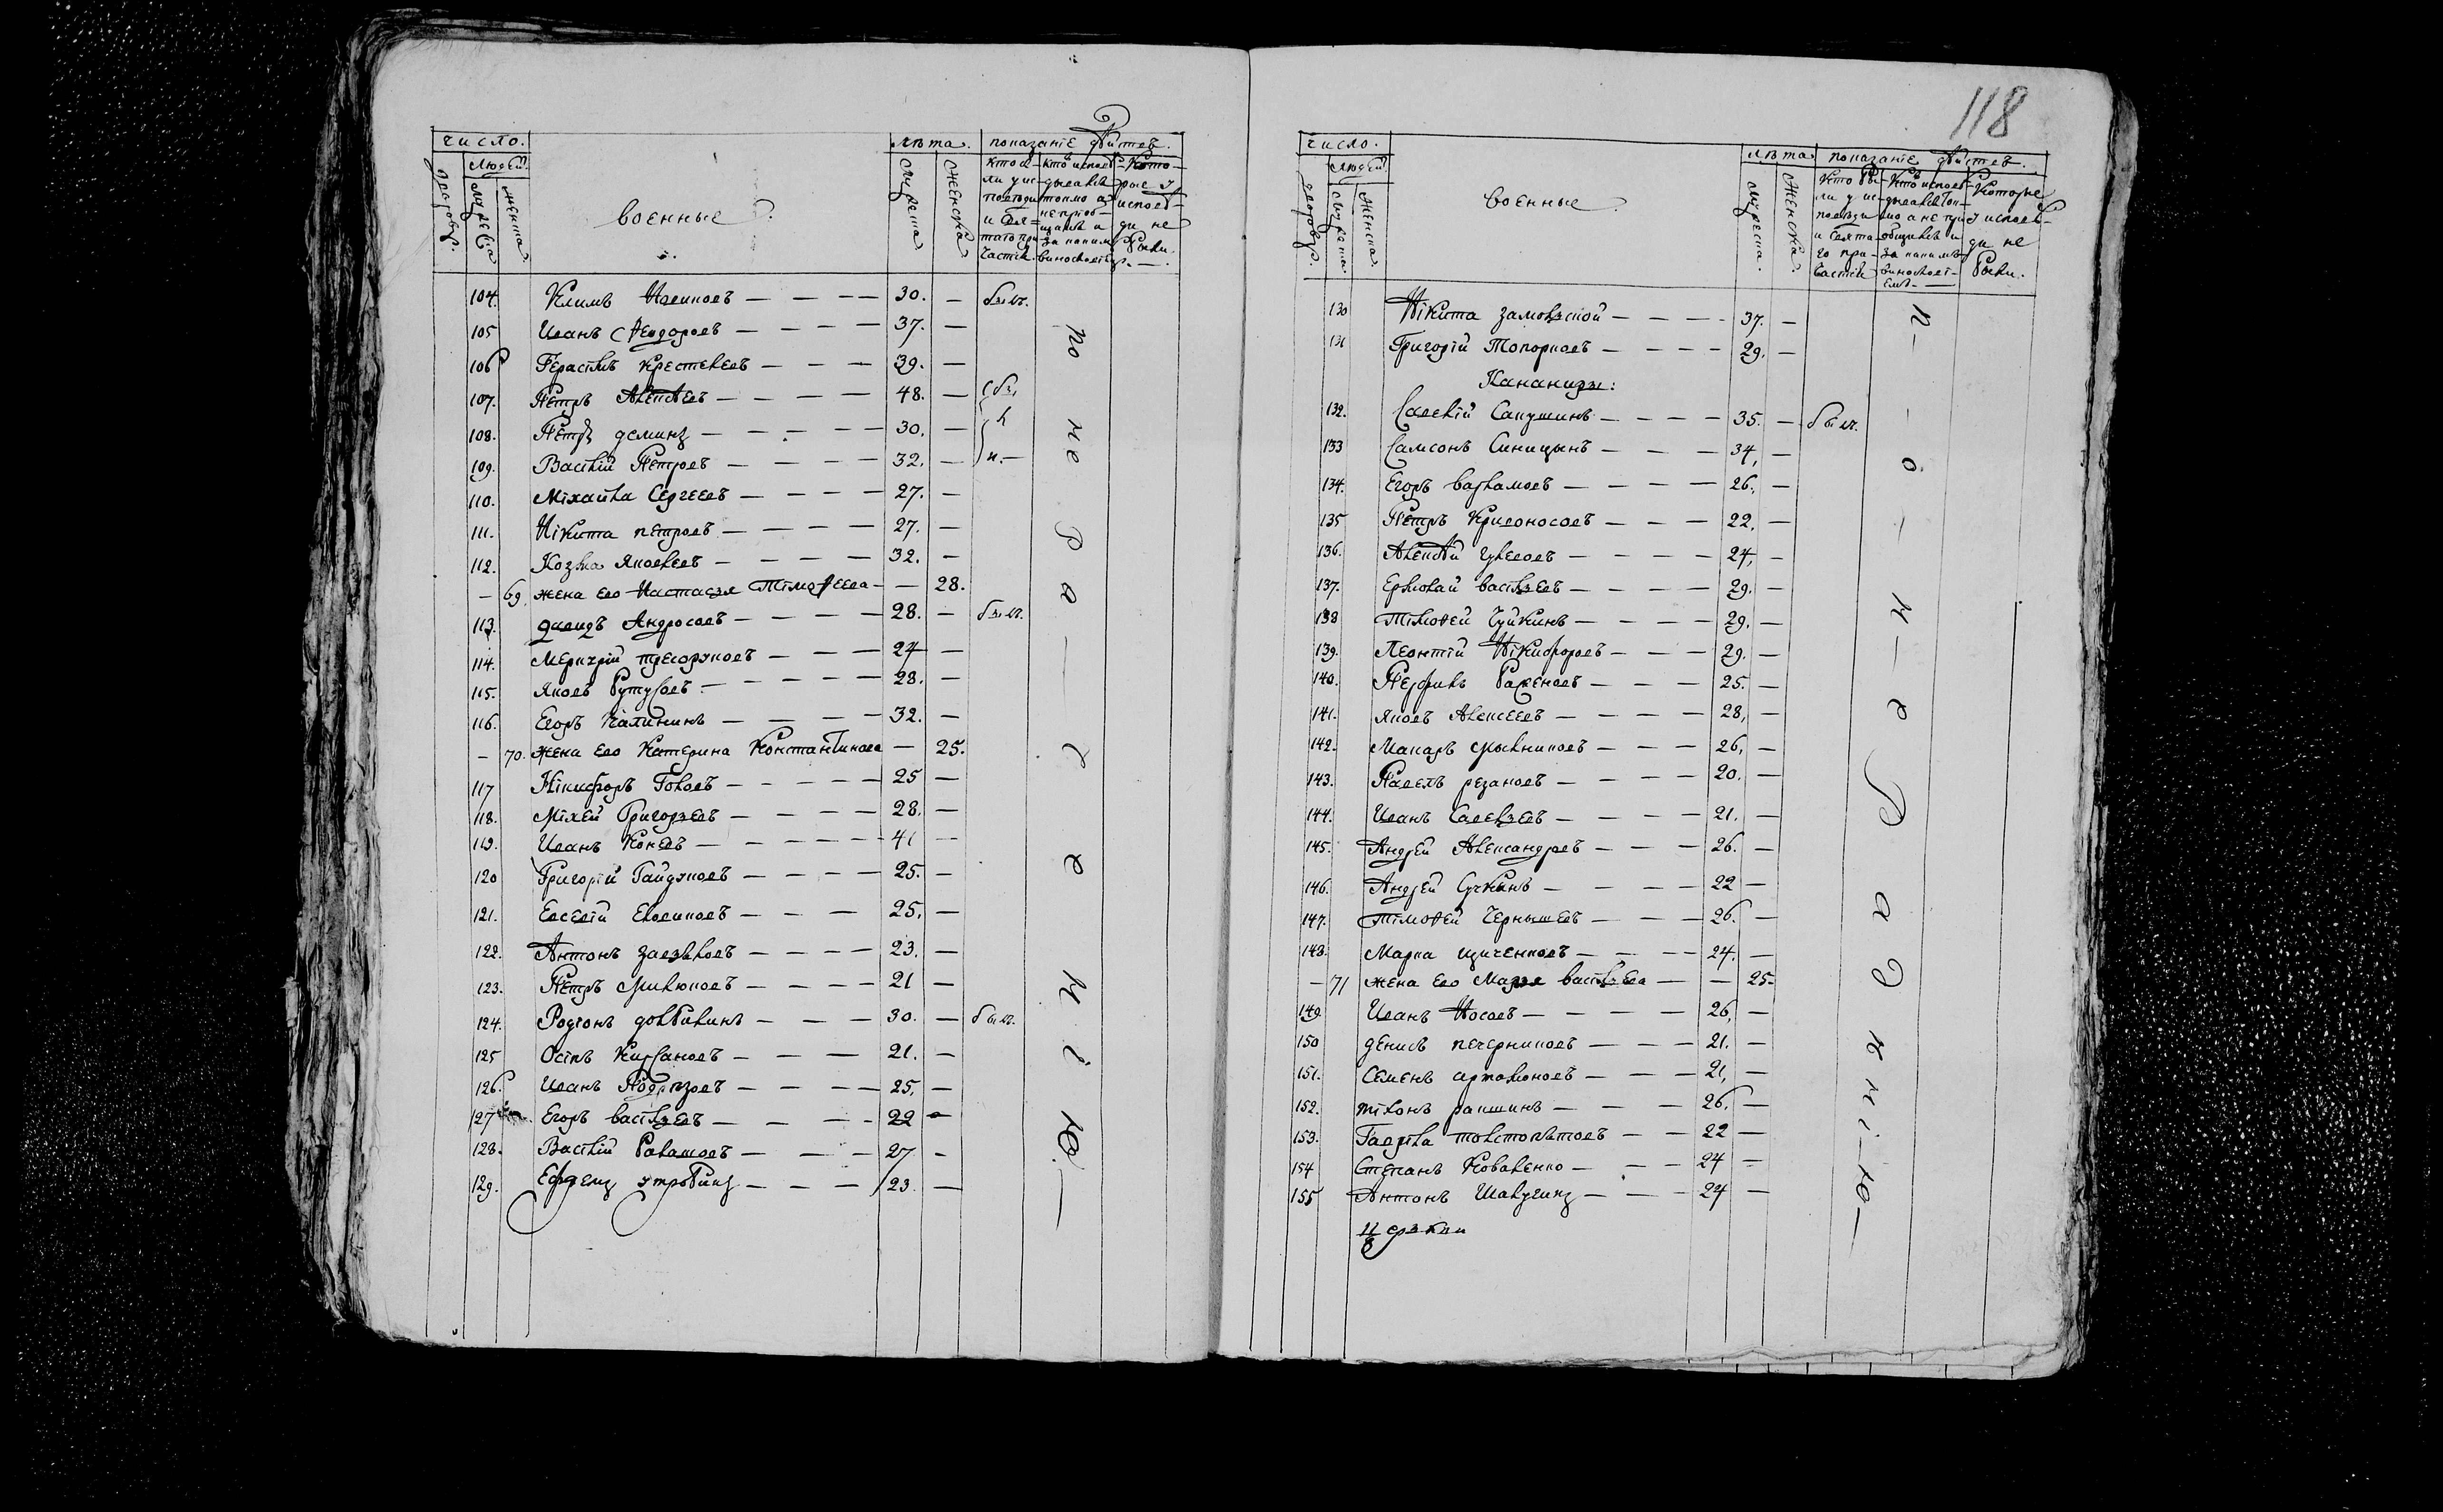 118
число.
людей.
дворовъ.
мужеска
женска.
военные.
лѣта.
мужеска
женска
показанiе дѣйств.
кто бы-
ли у ис-
повѣди
и свя-
таго при
частiя.
кто исповѣ-
дывался
токмо а
не приоб-
щался и
за какимъ
виносло-
Кото-
рые у
исповѣ-
ди не
были.
104. Климъ Новиковъ — — — 30. — былъ.
105 Иванъ Ѳеодоровъ — — — — 37. —
106 Герасимъ Крестевеевъ — — — 39. —
107. Петръ Алексѣевъ — — — — 48. — бы
108. Петръ деминъ — — — — 30. — л
109. Василiй Петровъ — — — — 32. — и.—
110. Мiхайла Сергеевъ — — — — 27. —
111. Нiкита петровъ — — — — 27. —
112. Козма Яковлевъ — — — — 32. —
— 69. жена его Настасья Тимоѳеева — — 28.
113. давидъ Андросовъ — — — — 28. — былъ.
114. Меркурiй — — — 27 —
115. Яковъ — — — — 28. —
116. Егоръ Калининъ — — — — 32. —
— 70. жена его Катерина Константинова — 25.
117 Нiкифоръ Головъ — — — — 25 —
118. Мiхей Григорьевъ — — — — 28. —
119. Иванъ Коневъ — — — — — 41 —
120 Григорiй Гайдуковъ — — — — 25. —
121. Евсевiй — — — 25. —
122. Антонъ Завьяловъ — — — — 23. —
123. Петръ Милюковъ — — — — 21 —
124. Родiонъ долбилинъ — — — 30. — былъ.
125 Осипъ Кирсановъ — — — 21. —
126. Иванъ — — — — 25. —
127 Егоръ васильевъ — — — — 22 —
128. Василiй Балашовъ — — — 27 —
129. Ефремъ утробинъ — — — 23. —
по нерадѣнiю —
число.
людей.
дворовъ.
мужеска
женска.
военные.
лѣта
мужеска.
женска.
показанiе дѣйств.
Кто бы-
ли у ис-
повѣди
и свята-
го при-
частiя
Кто исповѣ-
дывался ток-
мо а не при
общился и
за какимъ
виносло-
емъ. —
Которые
у исповѣ-
ди не
были.
130 Нiкита замовской — — — — 37. —
131 Григорiй Топорковъ — — — — 29. —
Кананиры:
132. Савелiй Сапушинъ — — — — 35. — былъ.
133 Самсонъ Синицынъ — — — 34, —
134. Егоръ варламовъ — — — — 26. —
135 Петръ Кривоносовъ — — — 22. —
136. Алексѣй — — — — 24, —
137. Ермолай васильевъ — — — — 29. —
138 Тiмоѳей Чуйкинъ — — — — 29. —
139. Леонтiй Нiкифоровъ — — — 29. —
140. Перфилъ — — — 25. —
141. Яковъ Алексеевъ — — — — 28, —
142. Макаръ мыльниковъ — — — 26, —
143. Павелъ резановъ — — — — 20. —
144. Иванъ Савельевъ — — — — 21. —
145. Андрей Александровъ — — — 26. —
146. Андрей Сучкинъ — — — — 22 —
147. Тiмоѳей Чернышевъ — — — 26. —
148. Марка ищченковъ — — — — 24. —
— 71 жена его Марья васильева — — 25.
149. Иванъ Носовъ — — — — 26, —
150 денисъ печерниковъ — — — 21. —
151. Семенъ артамоновъ — — — 21, —
152. тихонъ ракшинъ — — — 26. —
153. Гаврила толстопятовъ — — 22 —
154 Степанъ Коваленко — — — 24 —
155 Антонъ Шалугинъ — — — 24 —
по-нерадѣнiю —